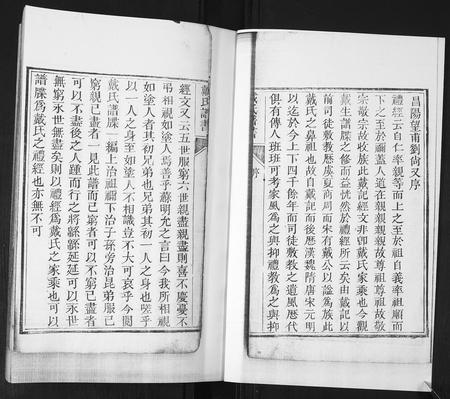 昌陽望甫劉尙又序
禮經云自仁率親等而上之至於祖自義率祖順而
下之至於禰蓋人道在親親親親故尊祖尊祖故敬
宗敬宗故收族此戴記經文非卽戴氏家乘也今觀
戴生譜牒之修而益恍然於禮經所云矣由戴記以
前司徒敷教歷虞夏商周而宋有戴公以謚爲族此
戴氏之鼻祖也故自戴記而後歷漢魏隋唐宋元明
以迄於今上下四千餘年而司徒敷教之遺風歷代
俱有傳人班班可考家風爲之與抑禮教爲之與抑
戴氏譜書
序
經文又云五世服窮六世親盡親盡則喜不慶憂不
弔相視如塗人焉善乎蘇明允之言曰今我所相視
如塗人者其初兄弟也兄弟其初一人之身也嗟乎
以一人之身至如塗人不相識豈不大可哀乎今閱
戴氏譜牒一編上治祖禰下治子孫旁治昆弟服已
窮親已盡者一見此譜而已窮者可以不窮已盡者
可以不盡後之人踵而行之將緜緜延延可以永世
無窮永世無盡矣則以禮經爲戴氏之家乘也可以
譜牒爲戴氏之禮經也亦無不可